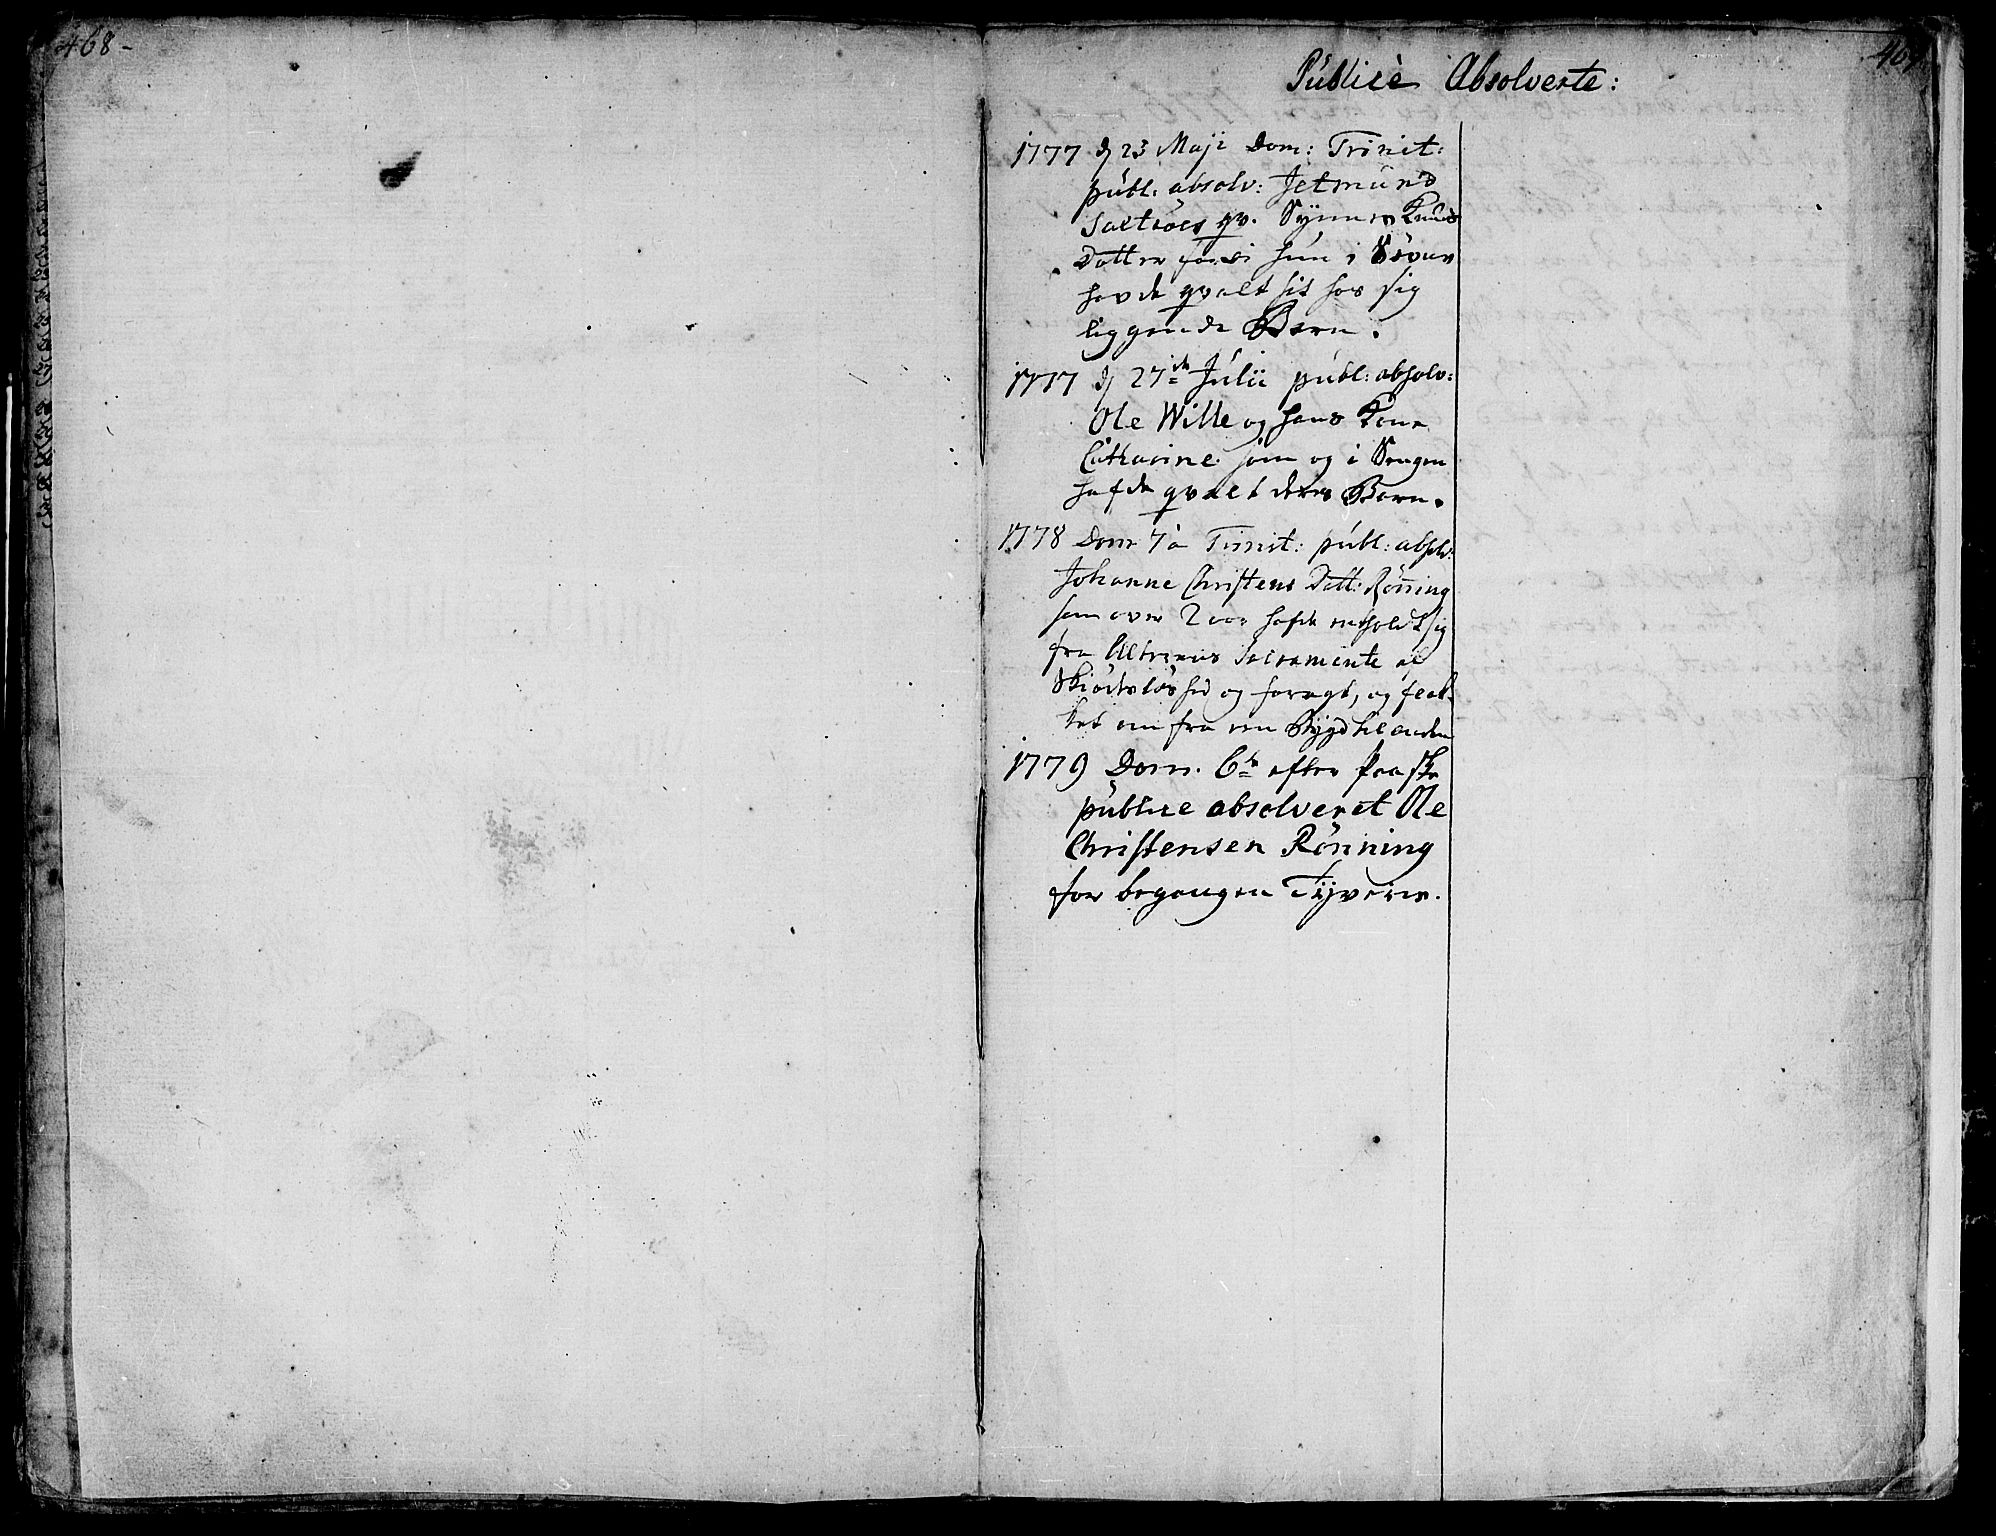 468-
469
Publicè Absolverte:
1777 d 23 Maji Dom: Trinit:
publ. absolv: Jetmund
qv. Synner Knuds
Datter fordi hun i Søvne
havde qvalt sit hos sig
liggende Barn.
1777 d 27de Julii publ: absolv:
Ole Wille og hans Kone
Catharine som og i Sengen
hafde qvalt deres Barn.
1778 Dom 7 a Trinit: publ: absolv:
Johanne Christens Datt: Rønning
som over 2 aar hafde entholdt sig
fra Alterens Sacramente af
Skiødesløshed og foragt, og flak-
ket om fra een Bygd til anden
1779 Dom. 6te efter Paaske
publice absolveret Ole
Christensen Rönning
for begangen Tyverie.